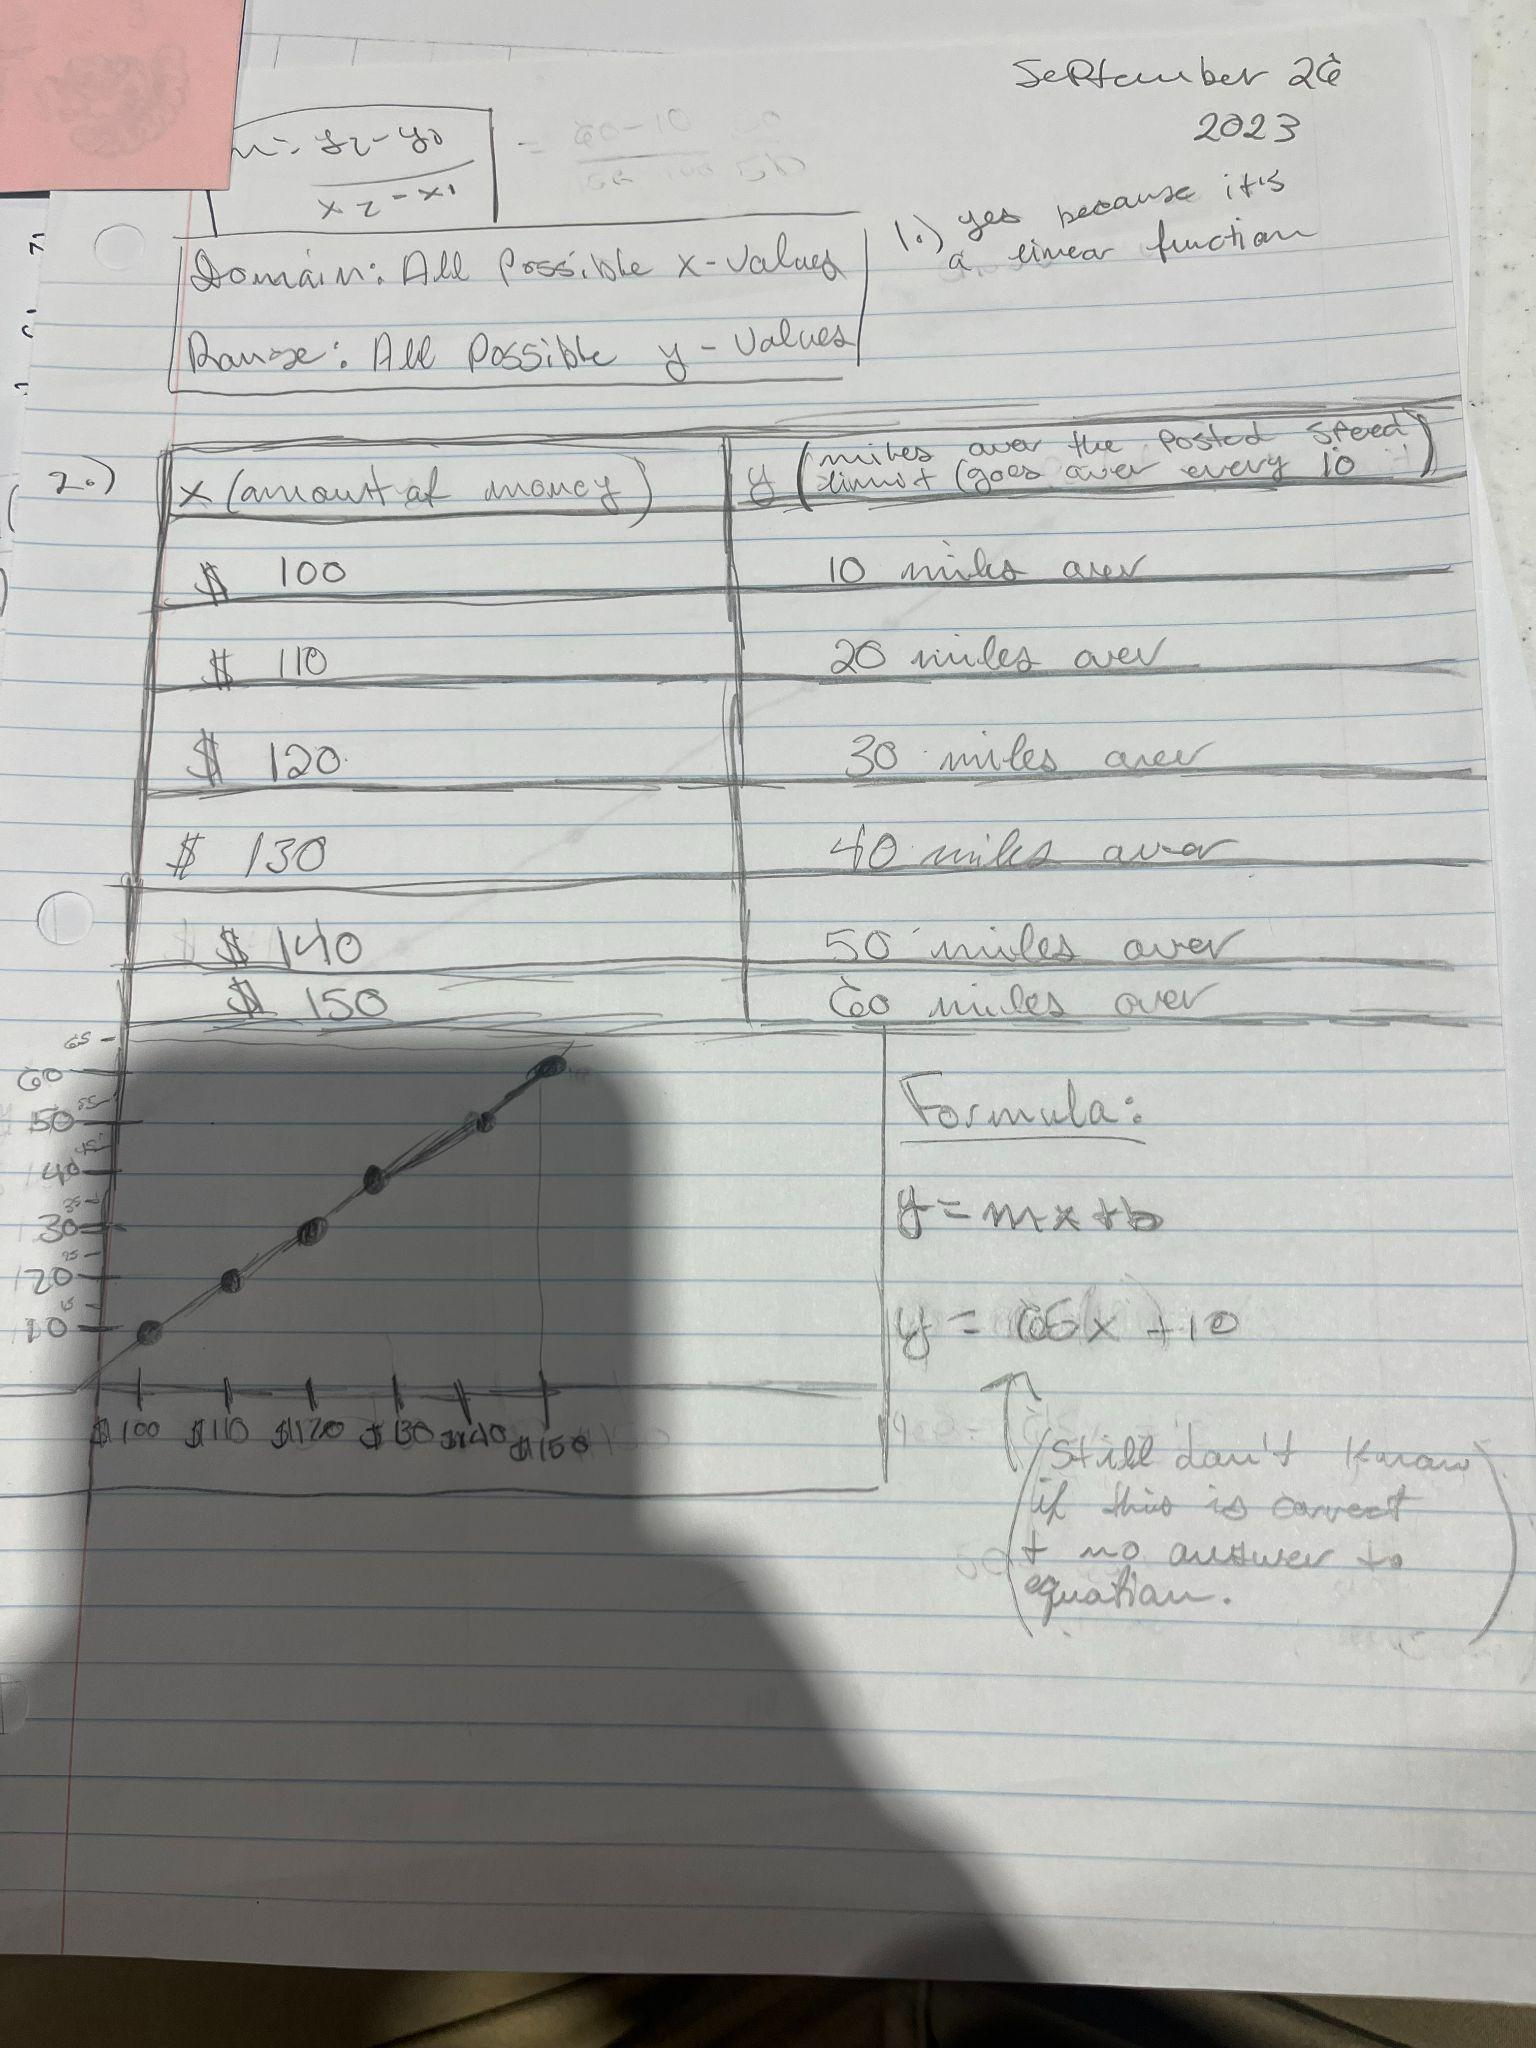 September 26
2023
m = y2 - y1
x2 - x1
= 60-10
Domain: All Possible x-values
Range: All Possible y-values
1.) yes because it's
a linear function
2.)
x (amount of money)
y (miles over the Posted Speed
limit (goes over every 10)
$ 100
10 miles over
$ 110
20 miles over
$ 120
30 miles over
$ 130
40 miles over
$ 140
50 miles over
$ 150
60 miles over
65
60
55
50
45
40
35
30
25
20
15
10
$100 $110 $120 $130 $140 $150
Formula:
y = mx + b
y = x + 10
(Still don't know
if this is correct
+ no answer to
equation.)